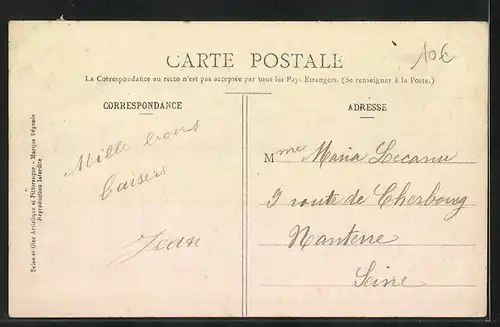 10€
CARTE POSTALE
La Correspondance au recto n'est pas acceptée par tous les Pays Etrangers. (Se renseigner à la Poste.)
CORRESPONDANCE
Mille bons
baisers
Jean
ADRESSE
Mme Maria Lecanu
9 route de Cherbourg
Nanterre
Seine
Seine-et-Oise Artistique et Pittoresque - Marque Déposée
Reproduction Interdite